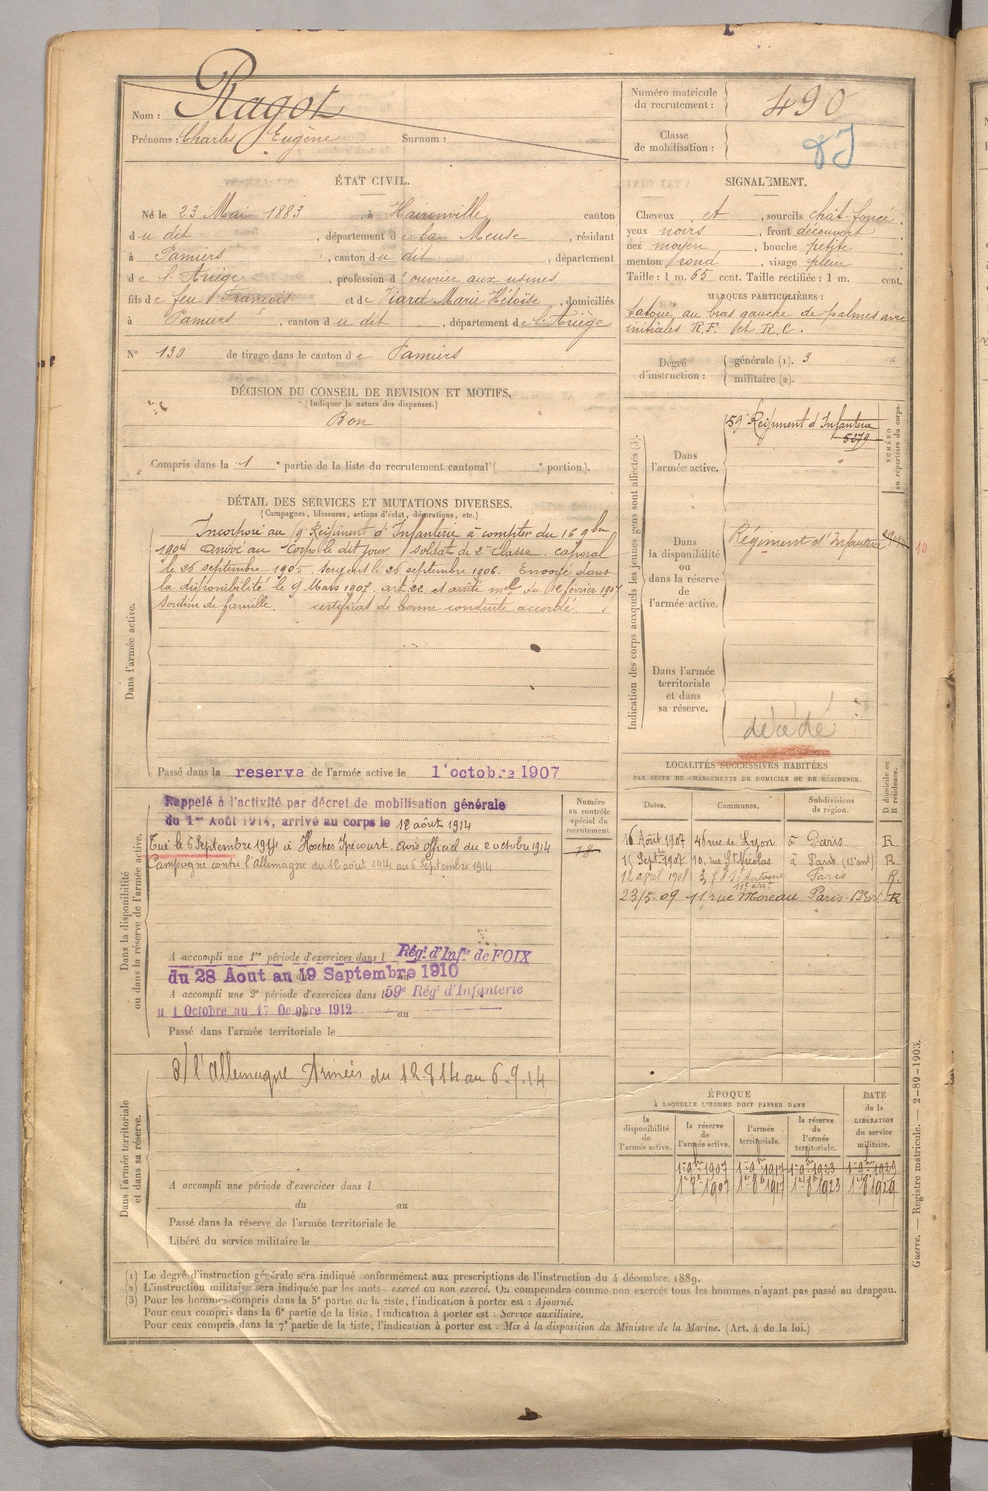 Nom : Ragot
Prénoms : Charles Eugène Surnom :
Numéro matricule du recrutement : 490
Classe de mobilisation : 03
ÉTAT CIVIL.
Né le 23 Mai 1883, à Haironville, canton
du dit, département de la Meuse, résidant
à Pamiers, canton du dit, département
de l'Ariège, profession d'ouvrier aux usines
fils de feu François et de Marie Héloïse, domiciliés
à Pamiers, canton du dit, département de l'Ariège
N° 130 de tirage dans le canton de Pamiers
SIGNALEMENT.
Cheveux et, sourcils chât. foncé,
yeux noirs, front découvert,
nez moyen, bouche petite,
menton rond, visage plein
Taille : 1 m. 65 cent. Taille rectifiée : 1 m. cent.
MARQUES PARTICULIÈRES :
tatoué au bras gauche de palmes avec
initiales R.F. et R.C.
Degré d'instruction : générale (1). 3
militaire (2).
DÉCISION DU CONSEIL DE REVISION ET MOTIFS.
(Indiquer la nature des dispenses.)
Bon
Compris dans la 1e partie de la liste du recrutement cantonal ( e portion).
DÉTAIL DES SERVICES ET MUTATIONS DIVERSES.
(Campagnes, blessures, actions d'éclat, décorations, etc.)
Dans l'armée active.
Incorporé au 59e Régiment d'Infanterie à compter du 16 9bre
1904 arrivé au Corps le dit jour, soldat de 2e classe. caporal
le 26 septembre 1905. sergent le 26 septembre 1906. Envoyé dans
la disponibilité le 9 Mars 1907. art. 22 et arrêté melle du 12 février 1907
soutien de famille. certificat de bonne conduite accordé.
Passé dans la reserve de l'armée active le 1er octobre 1907
Indication des corps auxquels les jeunes gens sont affectés (3).
NUMÉRO au répertoire du corps.
Dans l'armée active.
59e Régiment d'Infanterie
5279
Dans la disponibilité ou dans la réserve de l'armée active.
Régiment d'Infanterie
10
Dans l'armée territoriale et dans sa réserve.
décédé
LOCALITÉS SUCCESSIVES HABITÉES
PAR SUITE DE CHANGEMENTS DE DOMICILE OU DE RÉSIDENCE.
Dates. Communes. Subdivisions de région. D domicile ou R résidence.
16 Août 1907 46 rue de Lyon à Paris R
15 Septbre 1907 10, rue St Nicolas à Paris (12e arrt) R
12 avril 1908 3, f. St Antoine Paris R.
11e arrt
23/5-09 11 rue Moreau Paris-12e arrt R
Dans la disponibilité ou dans la réserve de l'armée active.
Numéro au contrôle spécial du recrutement
78
Rappelé à l'activité par décret de mobilisation générale
du 1er Août 1914, arrivé au corps le 12 août 1914
Tué le 6 Septembre 1914 à Avis officiel du 2 octobre 1914
Campagne contre l'Allemagne du 12 août 1914 au 6 Septembre 1914
A accompli une 1re période d'exercices dans l Régt d'Infie de FOIX
du 28 Aout au 19 Septembre 1910
A accompli une 2e période d'exercices dans l 59e Régt d'Infanterie
1 Octobre au 17 Octobre 1912 au
Passé dans l'armée territoriale le
Dans l'armée territoriale et dans sa réserve.
c/ l'Allemagne Armées du 12.8.14 au 6.9.14
A accompli une période d'exercices dans l
du au
Passé dans la réserve de l'armée territoriale le
Libéré du service militaire le
ÉPOQUE
À LAQUELLE L'HOMME DOIT PASSER DANS
DATE de la LIBÉRATION du service militaire.
la disponibilité de l'armée active. la réserve de l'armée active. l'armée territoriale. la réserve de l'armée territoriale.
1er 9bre 1907 1er 9bre 1917 1er 9bre 1923 1er 9bre 1929
1er 8bre 1907 1er 8bre 1917 1er 8bre 1923 1er 8bre 1929
Guerre. — Registre matricule. — 2-89-1903.
(1) Le degré d'instruction générale sera indiqué conformément aux prescriptions de l'instruction du 4 décembre 1889.
(2) L'instruction militaire sera indiquée par les mots : exercé ou non exercé. On comprendra comme non exercés tous les hommes n'ayant pas passé au drapeau.
(3) Pour les hommes compris dans la 5e partie de la liste, l'indication à porter est : Ajourné.
Pour ceux compris dans la 6e partie de la liste, l'indication à porter est : Service auxiliaire.
Pour ceux compris dans la 7e partie de la liste, l'indication à porter est : Mis à la disposition du Ministre de la Marine. (Art. 4 de la loi.)